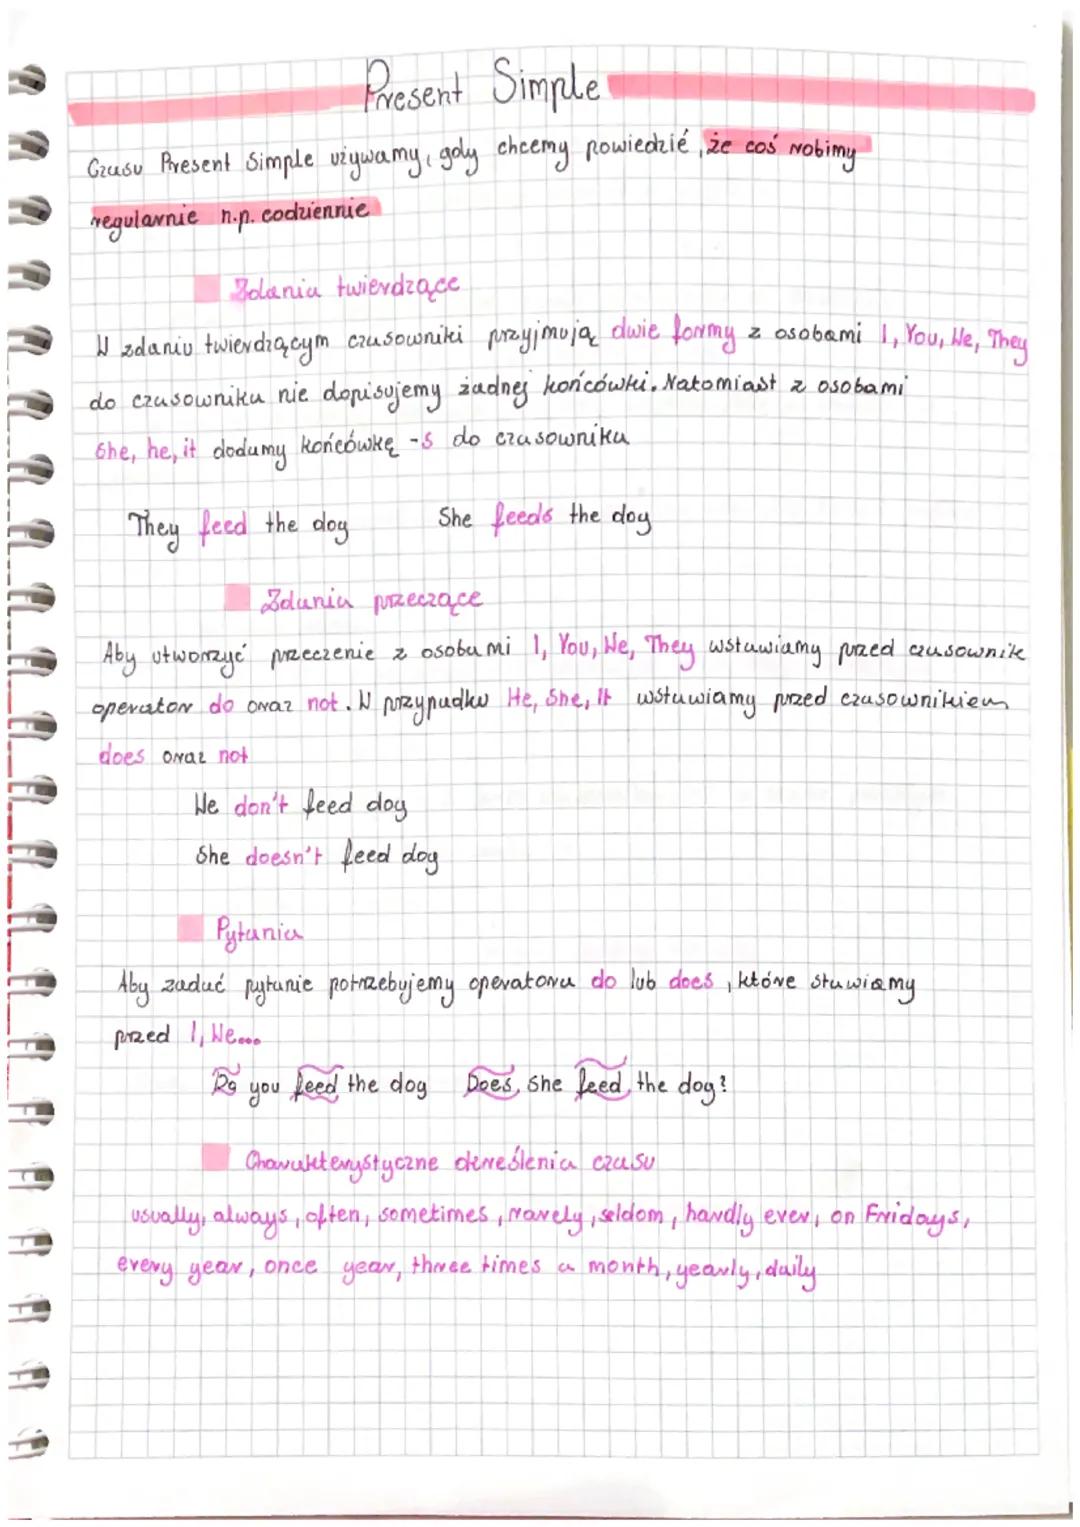 Present Simple
Czasu Present Simple używamy, gdy chcemy powiedzieć, że coś robimy
regularnie n.p. codziennie
Zdania twierdzące
W zdaniu twierdzącym czasowniki przyjmują dwie formy z osobami I, You, We, They
do czasowniku nie dopisujemy żadnej końcówki. Natomiast z osobami
She, he, it dodamy końcówkę -s do czasownika
They feed the dog She feeds the dog
Zdania przeczące
Aby utworzyć przeczenie z osobami I, You, We, They wstawiamy przed czasownik
operator do oraz not. W przypadku He, She, It wstawiamy przed czasownikiem
does oraz not
We don't feed dog
She doesn't feed dog
Pytania
Aby zadać pytanie potrzebujemy operatora do lub does, które stawiamy
przed I, We...
Do you feed the dog Does she feed the dog?
Charakterystyczne określenia czasu
usually, always, often, sometimes, rarely, seldom, hardly ever, on Fridays,
every year, once year, three times a month, yearly, daily